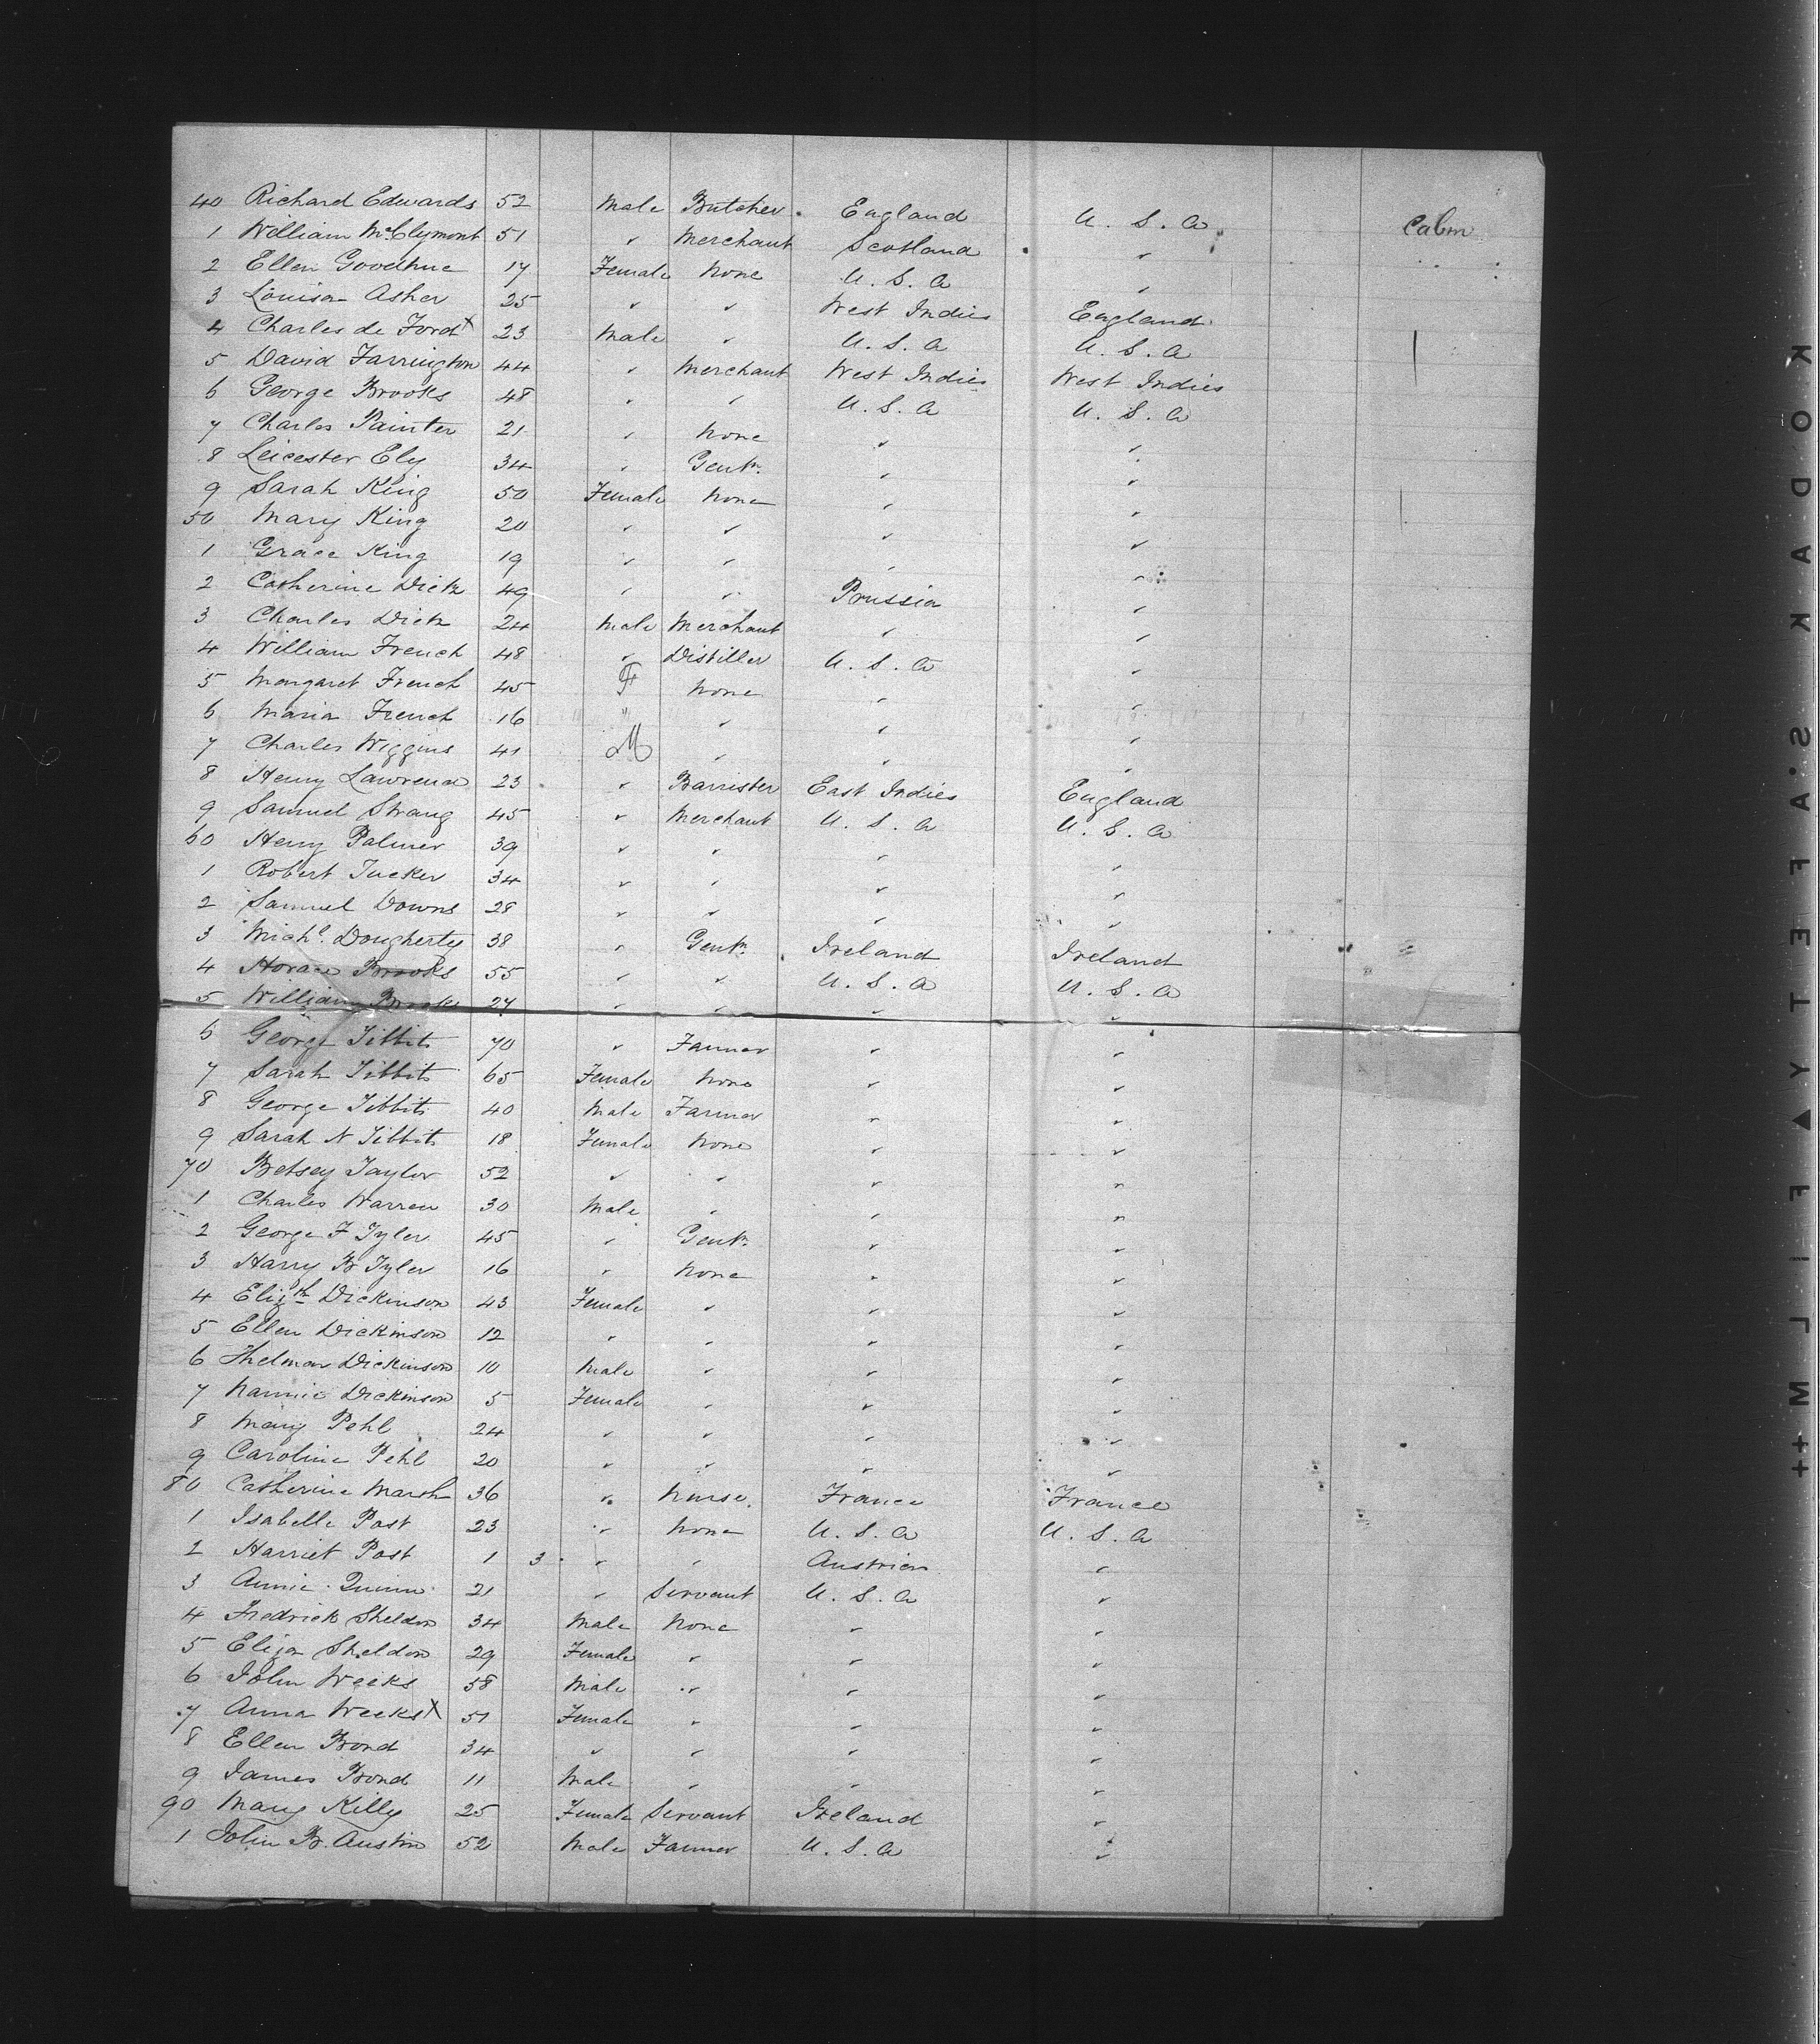 40 Richard Edwards 52 Male Butcher England U. S. A Cabin
1 William McClymont 51 " Merchant Scotland "
2 Ellen Goodhue 17 Female None U. S. A "
3 Louisa Asher 25 " " West Indies England
4 Charles de Ford x 23 Male " U. S. A U. S. A
5 David Farrington 44 " Merchant West Indies West Indies
6 George Brooks 48 " " U. S. A U. S. A
7 Charles Painter 21 " None " "
8 Leicester Ely 34 " Gentn. " "
9 Sarah King 50 Female None " "
50 Mary King 20 " " " "
1 Grace King 19 " " " "
2 Catherine Dietz 49 " " Prussia "
3 Charles Dietz 24 Male Merchant " "
4 William French 48 " Distiller U. S. A "
5 Margaret French 45 F None " "
6 Maria French 16 " " " "
7 Charles Wiggins 41 M " " "
8 Henry Lawrence 23 " Barrister East Indies England
9 Samuel Strang 45 " Merchant U. S. A U. S. A
60 Henry Palmer 39 " " " "
1 Robert Tucker 34 " " " "
2 Samuel Downs 28 " " " "
3 Michl. Dougherty 38 " Gentn. Ireland Ireland
4 Horace Brooks 55 " " U. S. A U. S. A
5 William Brooks 27 " " " "
6 George Tibbits 70 " Farmer " "
7 Sarah Tibbits 65 Female None " "
8 George Tibbits 40 Male Farmer " "
9 Sarah N Tibbits 18 Female None " "
70 Betsey Taylor 52 " " " "
1 Charles Warren 30 Male " " "
2 George F Tyler 45 " Gentn. " "
3 Harry B Tyler 16 " None " "
4 Elizth Dickinson 43 Female " " "
5 Ellen Dickinson 12 " " " "
6 Thelmar Dickinson 10 Male " " "
7 Nannie Dickinson 5 Female " " "
8 Mary Pehl 24 " " " "
9 Caroline Pehl 20 " " " "
80 Catherine Marsh 36 " Nurse. France France
1 Isabelle Post 23 " None U. S. A U. S. A
2 Harriet Post 1 3 " " Austrian "
3 Annie Quinn 21 " Servant U. S. A "
4 Fredrick Sheldon 34 Male None " "
5 Eliza Sheldon 29 Female " " "
6 John Weeks 58 Male " " "
7 Anna Weeks x 51 Female " " "
8 Ellen Bond 34 " " " "
9 James Bond 11 Male " " "
90 Mary Killy 25 Female Servant Ireland "
1 John B. Austin 52 Male Farmer U. S. A "
KODAK · SAFETY ▲ FILM ++